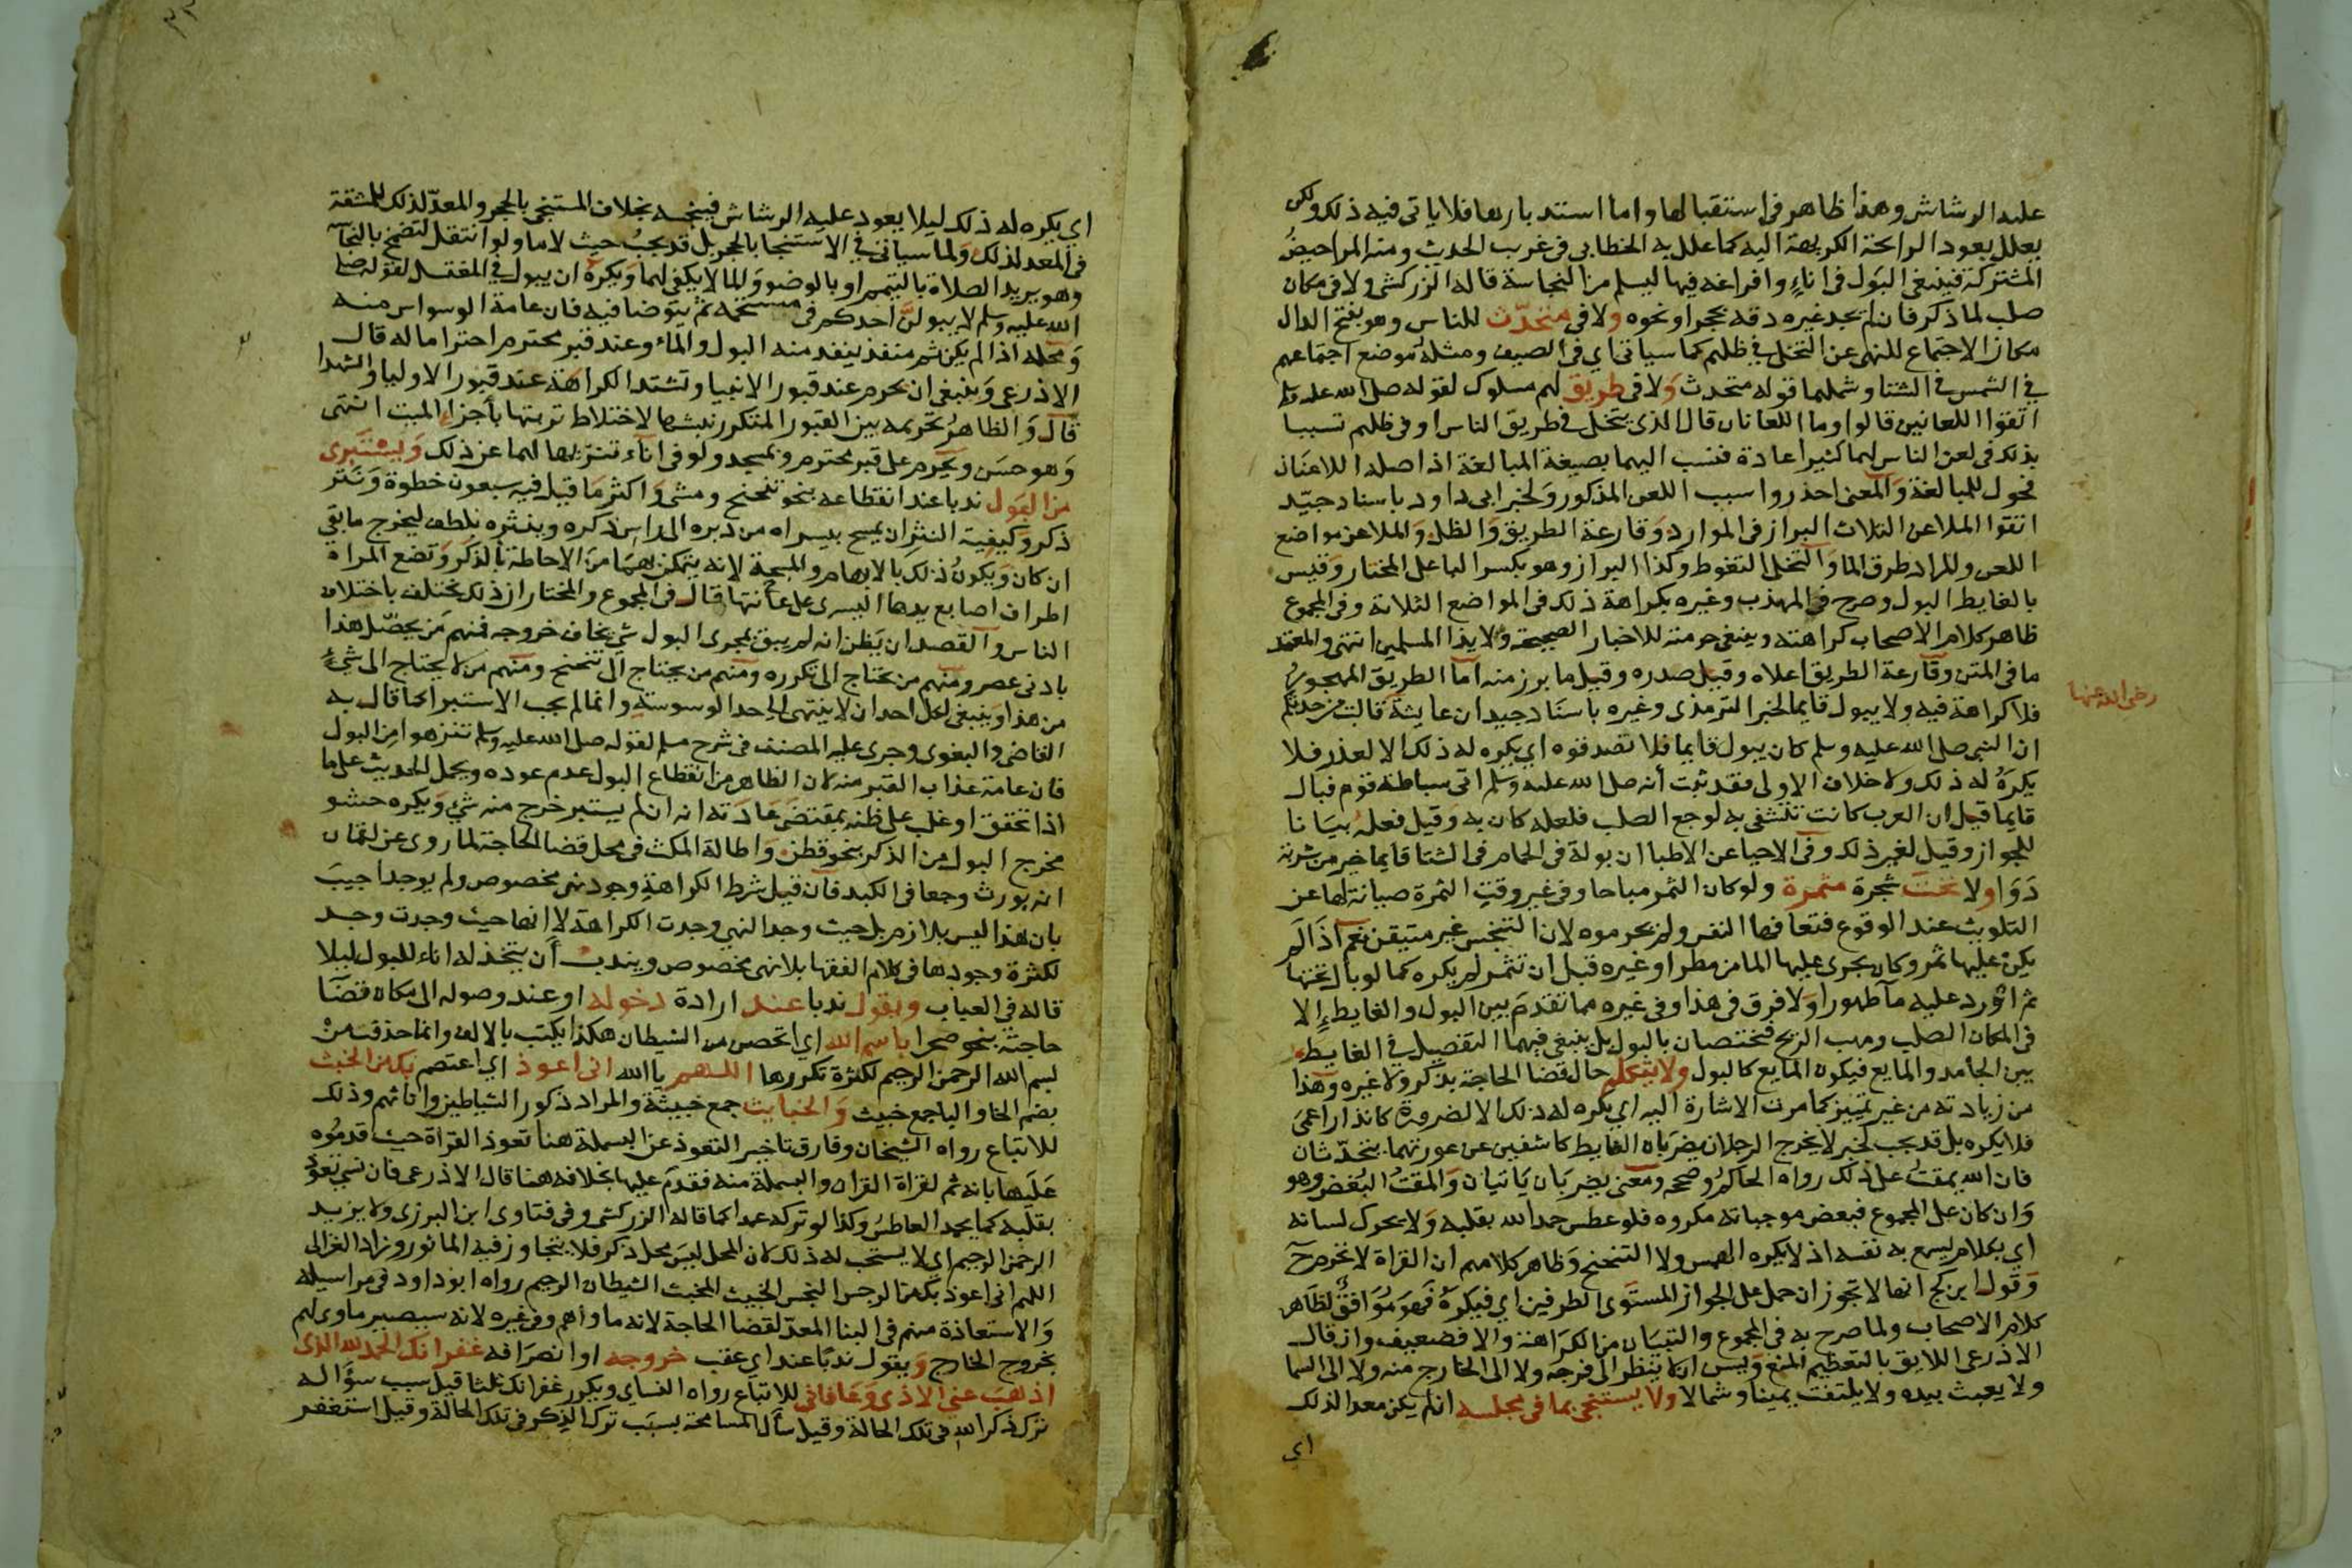 عليه الرشاش وهذا ظاهر في استقبالها واما استدبارها فلا ياتي فيه ذلك ولكن
يعلل بعود الرايحة الكريهة اليه كما علل به الخطابي في غريب الحديث ومنه المراحيض
المشتركة فينبغي البول في اناءٍ وافراغه فيها ليسلم من النجاسة قاله الزركشي ولا في مكان
صلب لما ذكر فان لم يجد غيره دقه بحجر او نحوه ولا في متحدّث للناس وهو بفتح الدال
مكان الاجتماع للنهي عن التخلي في ظلهم كما سياتي اي في الصيف ومثله موضع اجتماعهم
في الشمس في الشتا وشملهما قوله متحدث ولا في طريق لهم مسلوك لقوله صلى الله عليه وسلم
اتقوا اللعانين قالوا وما اللعانان قال الذي يتخلى في طريق الناس او في ظلهم تسببا
بذلك في لعن الناس لهما كثيرا عادة فنسب اليهما بصيغة المبالغة اذ اصله اللاعنان
فحول للمبالغة والمعنى احذروا سبب اللعن المذكور ولخبر ابي داود باسناد جيّد
اتقوا الملاعن الثلاث البراز في الموارد وقارعة الطريق والظل والملاعن مواضع
اللعن والمراد طرق الما والتخلي التغوط وكذا البراز وهو بكسر البا على المختار وقيس
بالغايط البول وصرح في المهذب وغيره بكراهة ذلك في المواضع الثلاثة وفي المجموع
ظاهر كلام الاصحاب كراهته وينبغي حرمته للاخبار الصحيحة ولايذا المسلمين انتهى والمعتمد
ما في المتن وقارعة الطريق اعلاه وقيل صدره وقيل ما برز منه اما الطريق المهجور
فلا كراهة فيه ولا يبول قايما لخبر الترمذي وغيره باسناد جيد ان عايشة قالت من حدثكم
رضي الله عنها
ان النبي صلى الله عليه وسلم كان يبول قايما فلا تصدقوه اي يكره له ذلك الا لعذر فلا
يكرهُ له ذلك ولا خلاف الاولى فقد ثبت أنه صلى الله عليه وسلم اتى سباطة قوم فبال
قايما قيل ان العرب كانت تتشفى به لوجع الصلب فلعله كان به وقيل فعلهُ بيانا
للجواز وقيل لغير ذلك وفي الاحيا عن الاطبا ان بولة في الحمام في الشتا قايما خير من شربة
دَوَا ولا تحت شجرة مثمرة ولو كان الثمر مباحا وفي غير وقت الثمرة صيانة لها عن
التلويث عند الوقوع فتعافها النفس ولم يحرموه لان التنجس غير متيقن نعم اذا لم
يكن عليها ثمر وكان يجري عليها الما من مطر او غيره قبل ان تثمر لم يكره كما لو بال تحتها
ثم اورد عليه مآ طهورا ولا فرق في هذا وفي غيره مما تقدم بين البول والغايطِ إلا
في المكان الصلب ومهب الريح فيختصان بالبول بل ينبغي فيهما التفصيل في الغايط
بين الجامد والمايع فيكون المايع كالبول ولا يتكلم حال قضا الحاجة بذكر ولا غيره وهذا
من زيادته من غير تمييز كما مرت الاشارة اليه اي يكره له ذلك الا لضرورة كانذار اعمى
فلا يكره بل قد يجب لخبر لا يخرج الرجلان يضربان الغايط كاشفين عن عورتهما يتحدّثان
فان الله يمقتُ على ذلك رواه الحاكم وصححه ومعنى يضربَان يَاتيان وَالمقتُ البُغض وهو
وَان كان على المجموع فبعض موجباته مكروه فلو عطس حمد الله بقلبه وَلا يحرك لسانه
اي بكلام يسمع به نفسه اذ لا يكره الهمس ولا التنحنح وَظاهر كلامهم ان القراة لا تحرم ح
وَقول ابن كج انها لا تجوز ان حمل على الجواز المستوى الطرفين اي فيكرهُ فَهوَ مُوَافقٌ لظاهر
كلام الاصحاب ولما صرح به في المجموع والتبيَان من الكَرَاهة والا فضعيف وان قال
الاذرعي اللايق بالتعظيم المنع وَليس ان لا ينظر الى فرجه ولا الى الخارج منه ولا الى السما
ولا يعبث بيده ولا يلتفت يمينا وشمالا ولا يستنجي بما في مجلسه ان لم يكن معدا لذلك
اي
اي يكره له ذلك ليلا يعود عليه الرشاش فينجسه بخلاف المستنجي بالحجر والمعدّ لذلك للمشقة
في المعد لذلك وَلما سياتي في الاستنجا بالحجر بل قد يجبُ حيث لا ما ولو انتقل لتضمخ بالنجاسة
وهو يريد الصلاة بالتيمم او بالوضو وَالما لا يكفي لهما ويكرهُ ان يبول في المغتسل لقوله صلى
الله عليه وسلم لا يبولنَّ احدكم في مستحمه ثم يتوضا فيه فان عامة الوسواس منه
وَمحله اذا لم يكن ثم منفذ ينفد منه البول والماءُ وعند قبر محترم احتراما له قال
الاذرعي وَينبغي ان يحرم عند قبور الانبيا وتشتد الكراهة عند قبور الاوليا والشهدا
قال وَالظاهرُ تحريمه بين القبور المتكرر نبشها لاختلاط تربتها بأجزاء الميت انتهى
وَهو حسَن ويحرم على قبر محترم وبمسجد ولو في اناء تنزيها لهما عن ذلك وَيستبرى
من البَول ندبا عند انقطاعه بنحو تنحنح ومشى وَاكثر مَا قيل فيه سبعون خطوة وَنَتر
ذكر وكيفية النثر ان يمسح بيسراه من دبره الى راس ذكره وينثره بلطف ليخرج ما بقي
ان كان وَيكونُ ذلك بالابهام والمسبحة لانه يتمكن بهمَا من الاحاطة بالذكر وَتضع المراة
اطراف اصابع يدها اليسرى على عانتها قال في المجموع والمختار ان ذلك يختلف باختلاف
الناس والقصد ان يَظن انه لم يبق بمجرى البول شي يخاف خروجه فمنهم مَن يحصّل هذا
بادنى عصر ومنهم من يحتاج الى تكرره ومنهم من يحتاج الى تنحنح ومنهم من لا يحتاج الى شيء
من هذا وينبغي لكل احد ان لا ينتهي الى حد الوسوسة وانما لم يجب الاستبرا كما قال به
القاضي والبغوي وجرى عليه المصنف في شرح مسلم لقوله صلى الله عليه وسلم تنزهوا من البول
فان عامة عذاب القبر منه لان الظاهر من انقطاع البول عدم عوده ويحمل الحديث على ما
اذا تحقق او غلب على ظنه بمقتضى عَادَته انه ان لم يستبر خرج منه شي وَيكره حشو
مخرج البول من الذكر بنحو قطن وَاطالة المكث في محل قضا الحاجة لما روى عن لقمان
انه يورث وجعا في الكبد فان قيل شرط الكراهة وجود نهي مخصوص ولم يوجد اجيبَ
بان هذا ليس بلازم بل حيث وجد النهي وجدت الكراهة لا انها حيث وجدت وجد
لكثرة وجودها في كلام الفقها بلا نهي مخصوص ويندبُ أن يتخذ له اناء للبول ليلا
قاله في العباب ويقول ندبا عند ارادة دخوله او عند وصوله الى مكان قضَا
حاجته بنحو صحرا باسم الله اي اتحصن من الشيطان هكذا يكتب بالالف وانما حذفت مِنْ
بسم الله الرحمن الرحيم لكثرة تكررها اللهم يا الله اني اعوذ اي اعتصم بك من الخبث
بضم الخا والبا جمع خبيث وَالخبايث جمع خبيثة والمراد ذكور الشياطين واناثهم وذلك
للاتباع رواه الشيخان وفارق تاخير التعوذ عن البسملة هنا تعوذ القراة حيث قدمُوه
عَلَيها بانه ثم لقراة القران والبسملة منه فقدم عليها بخلافه هنا قال الاذرعي فان نسي تعوّذ
بقلبه كما يحمد العاطسُ وكذا لو تركه عمدا كما قاله الزركشي وفي فتاوى ابن البرزي ولا يزيد
الرحمن الرحيم اي لا يستحب له ذلك لان المحل ليسَ محل ذكر فلا يتجاوز فيه الماثور وزاد الغزالي
اللهم اني اعوذ بك من الرجس النجس الخبيث المخبث الشيطان الرجيم رواه ابو داود في مراسيله
وَالاستعاذة منهم في البنا المعدّ لقضا الحاجة لانه ماواهم وفي غيره لانه سيصير ماوى لهم
بخروج الخارج وَيقول ندبًا عند اي عقب خروجه او انصرَافه غفرانك الحمد لله الذي
اذهبَ عني الاذى وَعَافاني للاتباع رواه النساي ويكرر غفرانك ثلثا قيل سبب سؤَاله
ترك ذكر الله في تلك الحالة وقيل سأل المسامحة بسبَب ترك الذكر في تلك الحالة وقيل استغفر